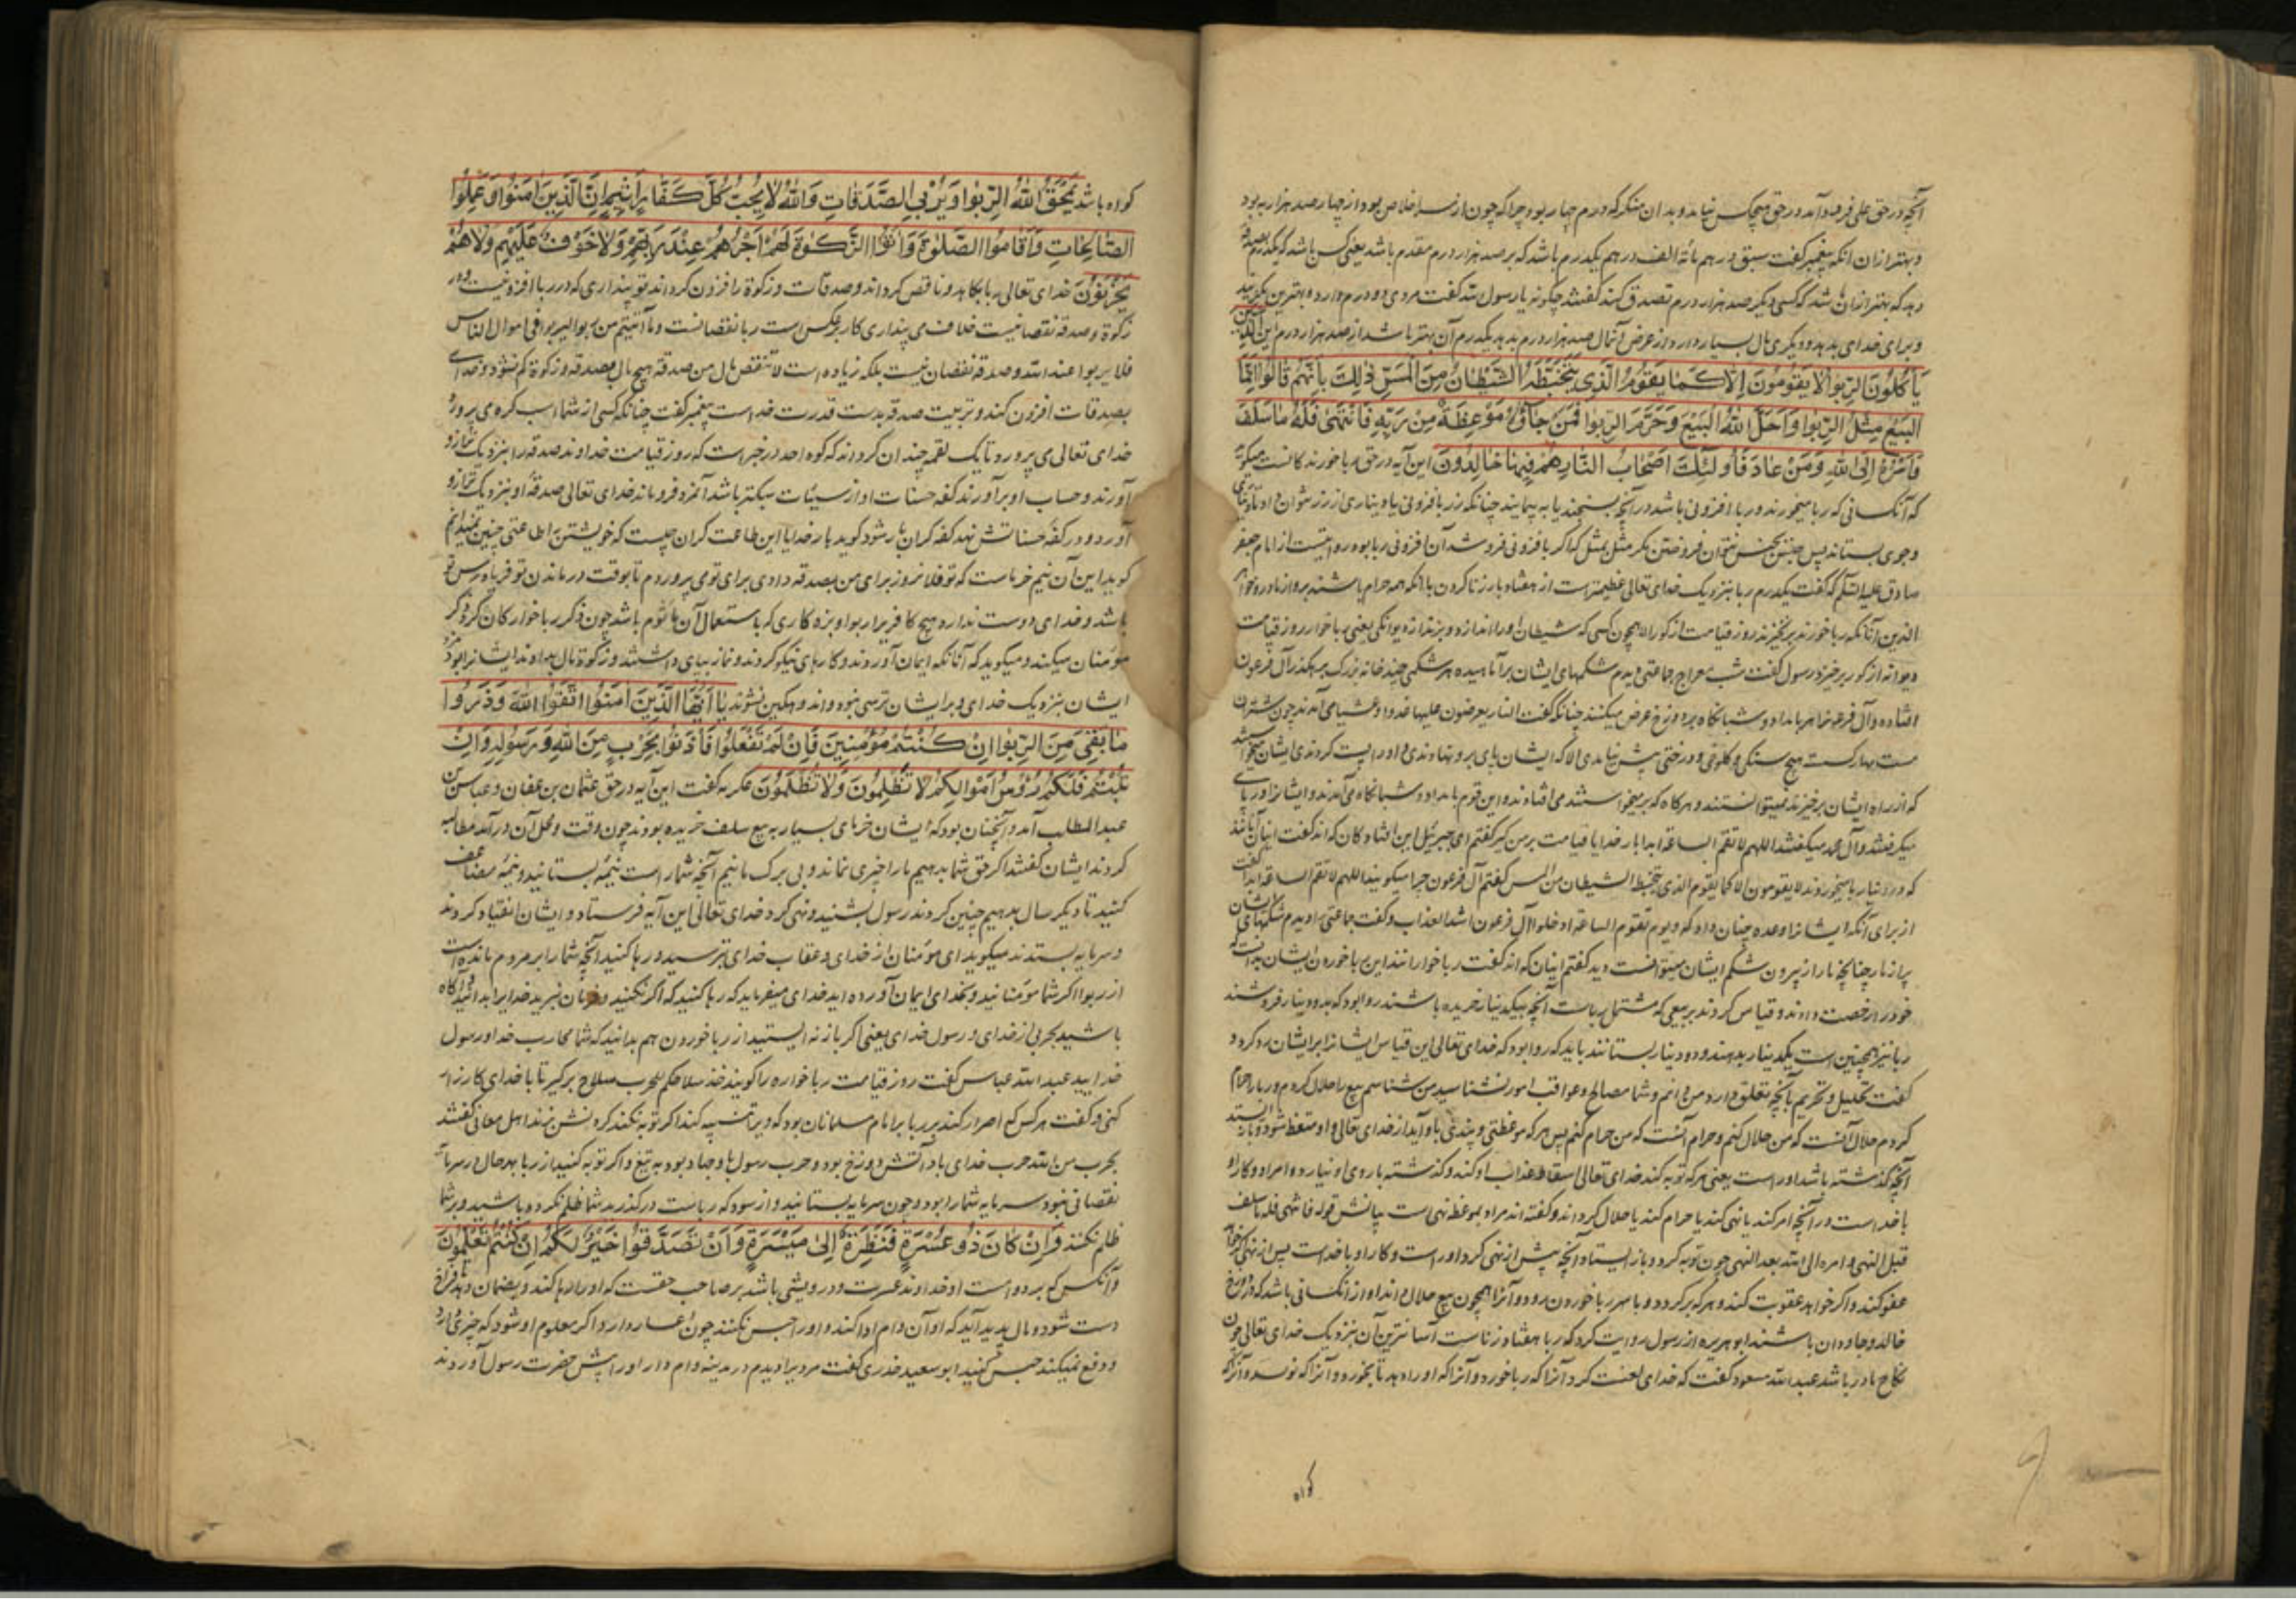 آنچه در حق علی فرود آمد در حق هیچکس نیامد و بدان منکر که درم چهار بود چرا که چون از سر اخلاص بود از چهار صد هزار به بود
و بهتر از آن انکه پیغمبر گفت سبق درهم مائة الف درهم یکدرم باشد که بر صد هزار درم مقدم باشد یعنی کس باشد که یکدرم بصدقه
دهد که بهتر از آن باشد که کسی دیگر صد هزار درم تصدق کند گفتند چگونه یا رسول الله گفت مردی دو درم دارد بهترین یکی بدهد
و برای خدای بدهد و دیگری مال بسیار دارد از عرض آنمال صد هزار درم بدهد یکدرم آن بهتر باشد از صد هزار درم این الَّذِينَ
يَأْكُلُونَ الرِّبٰوا لَا يَقُومُونَ اِلَّا كَمَا يَقُومُ الَّذِي يَتَخَبَّطُهُ الشَّيْطَانُ مِنَ الْمَسِّ ذٰلِكَ بِاَنَّهُمْ قَالُوا اِنَّمَا
الْبَيْعُ مِثْلُ الرِّبٰوا وَاَحَلَّ اللّٰهُ الْبَيْعَ وَحَرَّمَ الرِّبٰوا فَمَنْ جَآءَهُ مَوْعِظَةٌ مِنْ رَبِّهِ فَانْتَهٰى فَلَهُ مَا سَلَفَ
وَاَمْرُهُ اِلَى اللّٰهِ وَمَنْ عَادَ فَاُولٰئِكَ اَصْحَابُ النَّارِ هُمْ فِيهَا خَالِدُونَ این آیه در حق ربا خورندکانست میکوید
که آنکسانی که ربا میخورند و ربا افزونی باشد در آنچه بسنجند یا به پیمایند چنانکه زر بافزونی یا دیناری از زر نتوان داد تا
و جوی بستاند پس جنس بجنس نتوان فروختن مکر مثل بمثل که اگر بافزونی فروشد آن افزونی ربا بود روایتیست از امام جعفر
صادق علیه السلام که گفت یکدرم ربا بنزدیک خدای تعالی عظیمتر است از هفتاد بار زنا کردن با انکه همه حرام باشند
الذین آنانکه ربا خورند بر نخیزند روز قیامت از کور الا همچون کسی که شیطان او را اندازد و بزند از دیوانکی یعنی ربا خوار روز قیامت
دیوانه از کور برخیزد رسول گفت شب معراج جماعتی دیدم شکمهای ایشان بر آماهیده هر شکمی چند خانه بزرک بر رهکذر آل فرعون
افتاده و آل فرعون را هر بامداد و شبانکاه بر دوزخ عرض میکنند چنانکه گفت النار یعرضون علیها غدوا و عشیا می آمدند چون شتران
مست مهار کسسته هیچ سنکی و کلوخی و درختی پیش نیامدی الا که ایشان پای برو نهادندی و او را پست کردندی ایشان میخواستند
که از راه ایشان برخیزند نمیتوانستند و هر کاه که بر میخواستند می افتادند و این قوم بامداد و شبانکاه می آمدند و ایشان را در پای
میکرفتند و آل میکفتند اللهم لا تقم الساعة ابدا بار خدایا قیامت بر من کیر کفتم ای جبرئیل این افتادکان که اند گفت اینان آنانند
که در دنیا ربا میخوردند لا یقومون الا کما یقوم الذی یتخبطه الشیطان من المس کفتم آل فرعون چرا میکویند اللهم لا تقم الساعة ابدا گفت
از برای آنکه ایشان را وعده چنان داد که و یوم تقوم الساعة ادخلوا آل فرعون اشد العذاب و گفت جماعتی را دیدم شکمهای ایشان
پر از مار چنانچه مار از بیرون شکم ایشان میتوانست دید کفتم اینان که اند گفت ربا خوارانند این ربا خوردن ایشان بدانست که
خود را رخصت دادند و قیاس کردند بر بیعی که مشتمل بر ربا است آنچه بیکدینار خریده باشند روا بود که بدو دینار فروشند
ربا نیز همچنین است یکدینار بدهند و دو دینار بستانند باید که روا بود که خدای تعالی این قیاس ایشان را بر ایشان رد کرد و
گفت تحلیل و تحریم بآنچه تعلق دارد من دانم و شما مصالح و عواقب امور نشناسید من شناسم بیع را حلال کردم و ربا را حرام
کردم حلال آنست که من حلال کنم و حرام آنست که من حرام کنم پس هر که موعظتی و پندی باو آید از خدای تعالی و او متعظ شود و باز ایستد
آنچه کذشته باشد او راست یعنی هر که توبه کند خدای تعالی اسقاط عذاب او کند و کذشته با روی او نیارد و امر او و کار او
با خداست در آنچه امر کند یا نهی کند یا حرام کند یا حلال کرداند و کفته اند مراد بموعظه نهی است بیانش قوله فانتهی فله ما سلف
قبل النهی و امره الی الله بعد النهی چون توبه کرد و باز ایستاد آنچه پیش از نهی کرد او راست و کار او با خداست پس از نهی اکر خواهد
عفو کند و اکر خواهد عقوبت کند و هر که بر کردد و با سر ربا خوردن رود و آنرا همچون بیع حلال داند او از آنکسانی باشد که در دوزخ
خالد و جاودان باشند ابو هریره از رسول روایت کرد که ربا هفتاد زنا است آسانترین آن بنزدیک خدای تعالی چون
نکاح مادر باشد عبد الله مسعود گفت که خدای لعنت کرد آنرا که ربا خورد و آنرا که او را دهد تا بخورد و آنرا که نویسد و آنرا که
کواه
کواه باشد يَمْحَقُ اللّٰهُ الرِّبٰوا وَيُرْبِي الصَّدَقَاتِ وَاللّٰهُ لَا يُحِبُّ كُلَّ كَفَّارٍ اَثِيمٍ اِنَّ الَّذِينَ اٰمَنُوا وَعَمِلُوا
الصَّالِحَاتِ وَاَقَامُوا الصَّلٰوةَ وَاٰتَوُا الزَّكٰوةَ لَهُمْ اَجْرُهُمْ عِنْدَ رَبِّهِمْ وَلَا خَوْفٌ عَلَيْهِمْ وَلَا هُمْ
يَحْزَنُونَ خدای تعالی ربا بکاهد و ناقص کرداند و صدقات و زکوة را افزون کرداند تو پنداری که در ربا افزونیست و در
زکوة و صدقه نقصانیست خلاف می پنداری کار بر عکس است ربا نقصانست و ما آتیتم من ربوا لیربوا فی اموال الناس
فلا یربوا عند الله و صدقه نقصان نیست بلکه زیاده است لا تنقص مال من صدقة هیچ مال بصدقه و زکوة کم نشود و خدای
بصدقات افزون کند و تربیت صدقه بدست قدرت خداست پیغمبر گفت چنانکه کسی از شما اسب کره می پرورد
خدای تعالی می پرورد تا یک لقمه چندان کرداند که کوه احد در خبر است که روز قیامت خداوند صدقه را بنزدیک ترازو
آورند و حساب او بر آورند کفه حسنات او از سیئات سبکتر باشد آنمزد فروماند خدای تعالی صدقۀ او بنزدیک ترازو
آورد و در کفه حسناتش نهد کفه کران بار شود کوید بار خدایا این طاعت کران چیست که خویشتن را طاعتی چنین نمیدانم
کوید این آن نیم خرماست که تو فلان روز برای من بصدقه دادی برای تو می پروردم تا بوقت درماندن تو فریاد رس تو
باشد و خدای دوست ندارد هیچ کافر را و بزه کاری که باستعمال آن مأثوم باشد چون ذکر ربا خوارکان کرد ذکر
مؤمنان میکند و میکوید که آنانکه ایمان آوردند و کارهای نیکو کردند و نماز بپای داشتند و زکوة مال بدادند ایشان را بود مزد
ایشان بنزدیک خدای و بر ایشان ترسی نبود و اندوهکین نشوند يَا اَيُّهَا الَّذِينَ اٰمَنُوا اتَّقُوا اللّٰهَ وَذَرُوا
مَا بَقِيَ مِنَ الرِّبٰوا اِنْ كُنْتُمْ مُؤْمِنِينَ فَاِنْ لَمْ تَفْعَلُوا فَأْذَنُوا بِحَرْبٍ مِنَ اللّٰهِ وَرَسُولِهِ وَاِنْ
تُبْتُمْ فَلَكُمْ رُؤُسُ اَمْوَالِكُمْ لَا تَظْلِمُونَ وَلَا تُظْلَمُونَ عکرمه گفت این آیه در حق عثمان بن عفان و عباس بن
عبد المطلب آمد و آنچنان بود که ایشان خرمای بسیار به بیع سلف خریده بودند چون وقت و محل آن در آمد مطالبه
کردند ایشان کفتند اکر حق شما بدهیم ما را چیزی نماند و بی برک مانیم آنچه شما راست نیمۀ بستانید و نیمۀ مضاعف
کنید تا دیکر سال بدهیم چنین کردند رسول بشنید و نهی کرد خدای تعالی این آیه فرستاد و ایشان انقیاد کردند
و سرمایه بستدند میکوید ای مؤمنان از خدای و عقاب خدای بترسید و رها کنید آنچه شما را بر مردم مانده است
از ربوا اکر شما مؤمنانید و بخدای ایمان آورده اید خدای میفرماید که رها کنید که اکر نکنید و فرمان نبرید خدایرا بدانید و آکاه
باشید بحربی از خدای و رسول خدای یعنی اکر باز نه ایستید از ربا خوردن هم بدانید که شما محارب خدا و رسول
خدایید عبد الله عباس گفت روز قیامت ربا خواره را کویند خذ سلاحک للحرب سلاح برکیر تا با خدای کارزار
کنی و گفت هر کس که اصرار کند بر ربا بر امام مسلمانان بود که ویرا تنبیه کند اکر توبه نکند کردنش بزند اهل معانی کفتند
بحرب من الله حرب خدای بآتش دوزخ بود و حرب رسول با و جهاد بود به تیغ و اکر توبه کنید از ربا بهر حال در سرمایه
نقصانی نبود سرمایه شما را بود و چون سرمایه بستانید و از سود که رباست درکذرید شما ظلم نکرده باشید و بر شما
ظلم نکنند وَاِنْ كَانَ ذُو عُسْرَةٍ فَنَظِرَةٌ اِلٰى مَيْسَرَةٍ وَاَنْ تَصَدَّقُوا خَيْرٌ لَكُمْ اِنْ كُنْتُمْ تَعْلَمُونَ
و آنکس که برو وام است او خداوند عسرت و درویشی باشد بر صاحب حقست که او را رها کند و بضمان دهد تا فراخ
دست شود و مال پدید آید که او آن وام ادا کند و او را حبس نکنند چون اعسار دارد و اکر معلوم او شود که چیزی دارد
و دفع نمیکند حبس کنید ابو سعید خدری گفت مردیرا دیدم در مدینه وام دار او را پیش حضرت رسول آوردند